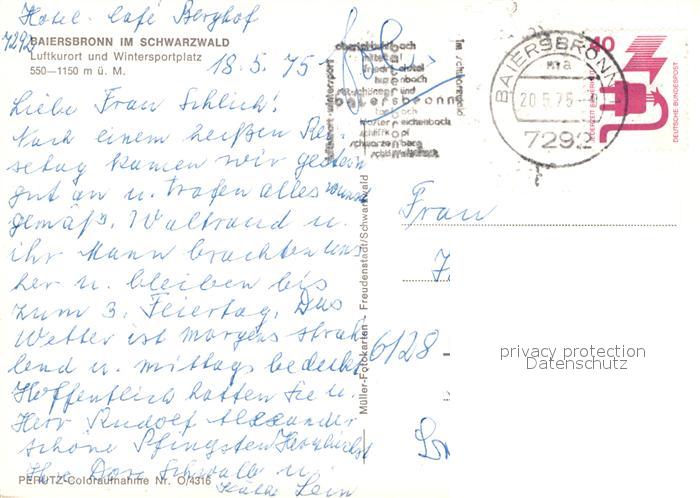 Hotel-Café Berghof
7292
BAIERSBRONN IM SCHWARZWALD
Luftkurort und Wintersportplatz
550—1150 m ü. M.
18.5.75
Liebe Frau Schlich!
Nach einem heißen Rei-
setag kamen wir gestern
gut an u. trafen alles wunsch
gemäß. Waltraud u.
ihr Mann brachten uns
her u. bleiben bis
zum 3. Feiertag. Das
Wetter ist morgens strah
lend u. mittags bedeckt.
Hoffentlich hatten Sie u.
Herr Rudolf Alexander
schöne Pfingsten. Herzlichst
Ihre Dora Schwalb u.
Käthe Lein
PERUTZ-Coloraufnahme Nr. O/4316
Müller-Fotokarten - Freudenstadt/Schwarzwald
luftkurort wintersport
obertal buhlbach
mitteltal
friedrichstal
tonbach
röt-schönegründ
baiersbronn
klosterreichenbach
schliffkopf
schwarzenberg
im schwarzwald
BAIERSBRONN
20.5.75
7292
40
JEDERZEIT SICHERHEIT
DEUTSCHE BUNDESPOST
Frau
6128
privacy protection
Datenschutz